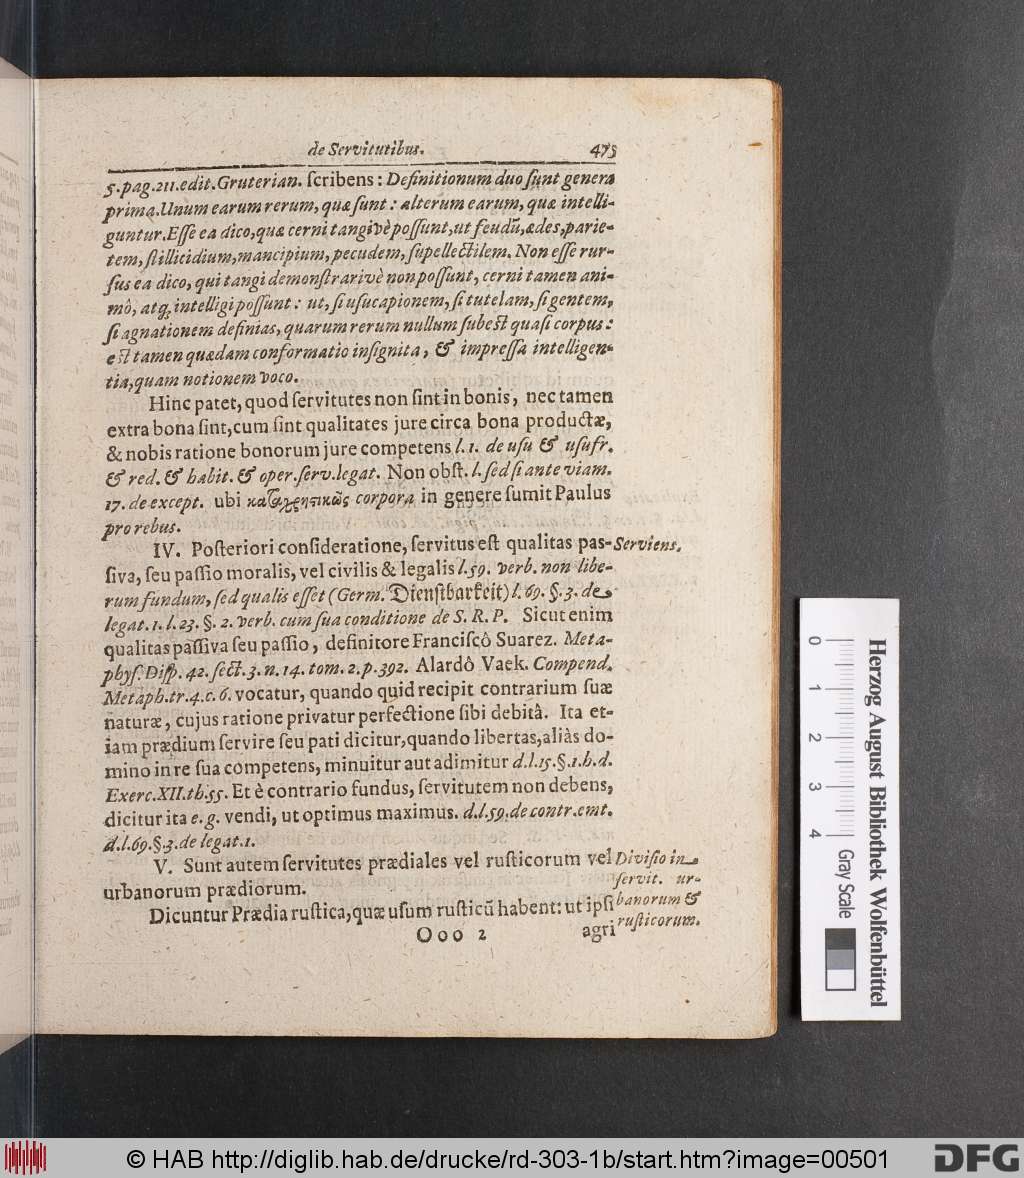 de Servitutibus. 475
5. pag. 211. edit. Gruterian. ſcribens: Definitionum duo ſunt genera
prima. Unum earum rerum, quæ ſunt: alterum earum, quæ intelli-
guntur. Eſſe ea dico, quæ cerni tangivè poſſunt, ut feudũ, ædes, parie-
tem, ſtillicidium, mancipium, pecudem, ſupellectilem. Non eſſe rur-
ſus ea dico, qui tangi demonſtrarivè non poſſunt, cerni tamen ani-
mô, atq; intelligi poſſunt: ut, ſi uſucapionem, ſi tutelam, ſi gentem,
ſi agnationem definias, quarum rerum nullum ſubeſt quaſi corpus:
eſt tamen quædam conformatio inſignita, & impreſſa intelligen-
tia, quam notionem voco.
Hinc patet, quod ſervitutes non ſint in bonis, nec tamen
extra bona ſint, cum ſint qualitates jure circa bona productæ,
& nobis ratione bonorum jure competens l. 1. de uſu & uſufr.
& red. & habit. & oper. ſerv. legat. Non obſt. l. ſed ſi ante viam.
17. de except. ubi καταχρηστικῶς corpora in genere ſumit Paulus
pro rebus.
IV. Poſteriori conſideratione, ſervitus eſt qualitas paſ- Serviens.
ſiva, ſeu paſſio moralis, vel civilis & legalis l. 59. verb. non libe-
rum fundum, ſed qualis eſſet (Germ. Dienſtbarkeit) l. 69. §. 3. de
legat. 1. l. 23. §. 2. verb. cum ſua conditione de S. R. P. Sicut enim
qualitas paſſiva ſeu paſſio, definitore Franciſcô Suarez. Meta-
phyſ. Diſp. 42. ſect. 3. n. 14. tom. 2. p. 392. Alardô Vaek. Compend.
Metaph. tr. 4. c. 6. vocatur, quando quid recipit contrarium ſuæ
naturæ, cujus ratione privatur perfectione ſibi debitâ. Ita et-
iam prædium ſervire ſeu pati dicitur, quando libertas, aliàs do-
mino in re ſua competens, minuitur aut adimitur d. l. 15. §. 1. h. d.
Exerc. XII. th. 55. Et è contrario fundus, ſervitutem non debens,
dicitur ita e. g. vendi, ut optimus maximus. d. l. 59. de contr. emt.
d. l. 69. §. 3. de legat. 1.
V. Sunt autem ſervitutes prædiales vel ruſticorum vel
urbanorum prædiorum.
Diviſio in
ſervit. ur-
banorum &
ruſticorum.
Dicuntur Prædia ruſtica, quæ uſum ruſticũ habent: ut ipſi
Ooo 2 agri
0 1 2 3 4
Gray Scale
Herzog August Bibliothek Wolfenbüttel
© HAB http://diglib.hab.de/drucke/rd-303-1b/start.htm?image=00501
DFG